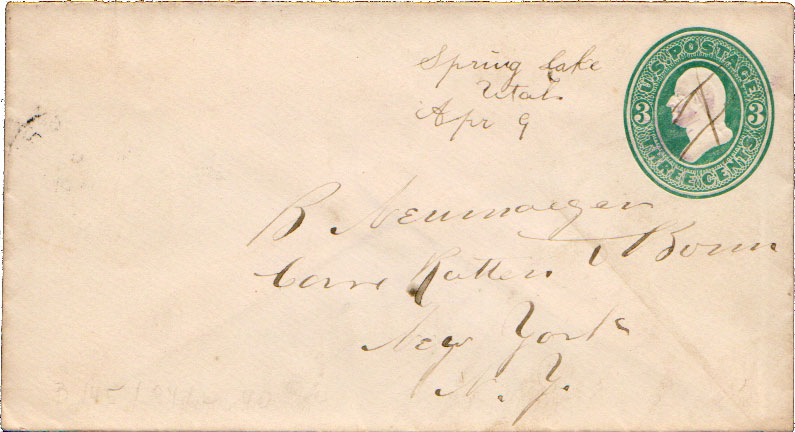 Spring Lake
Utah
Apr 9
U.S. POSTAGE
3 3
THREE CENTS
B Neumoegen
Care Kutten & Bonn
New York
N.Y.